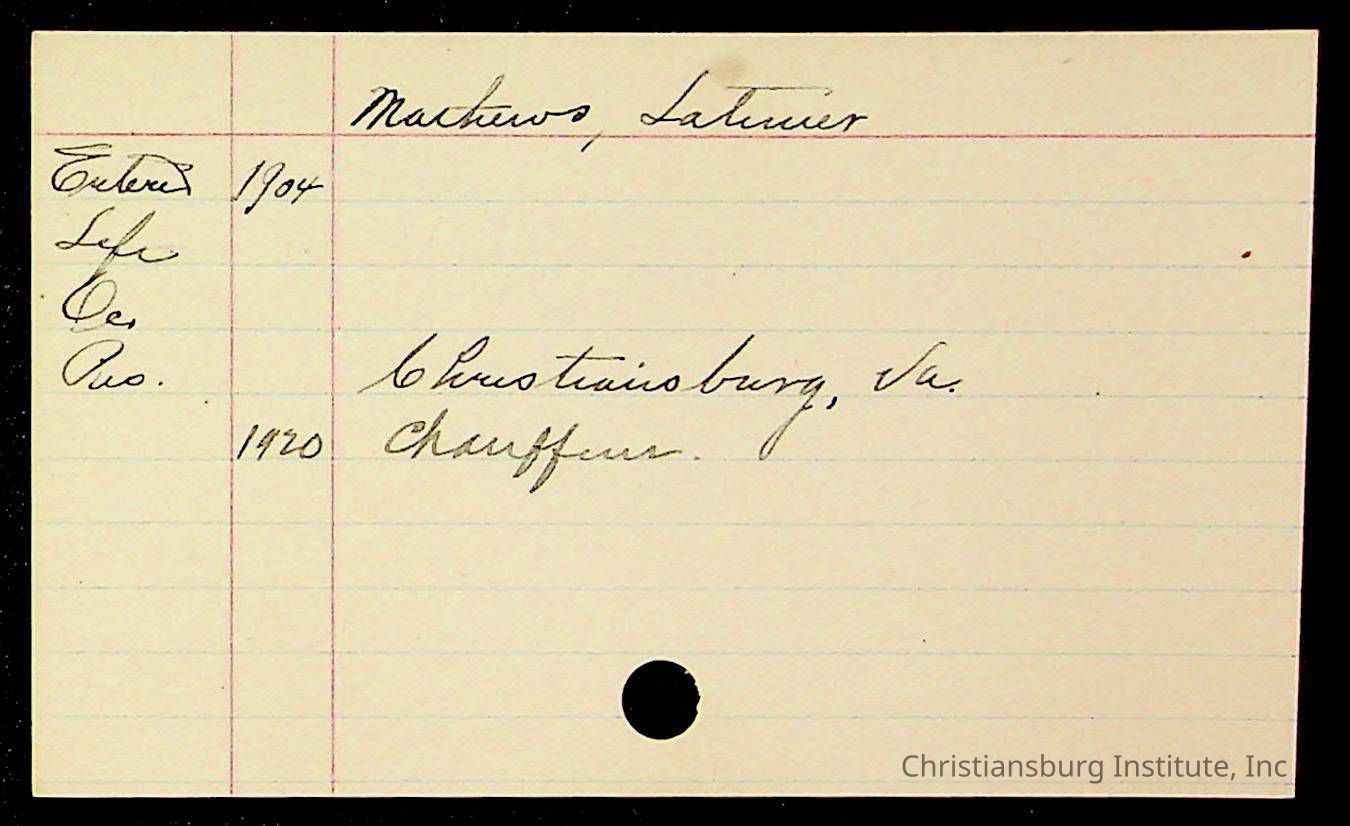 Mathews, Latimer
Entered 1904
Left
Oc.
Res. Christiansburg, Va.
1920 Chauffeur.
Christiansburg Institute, Inc